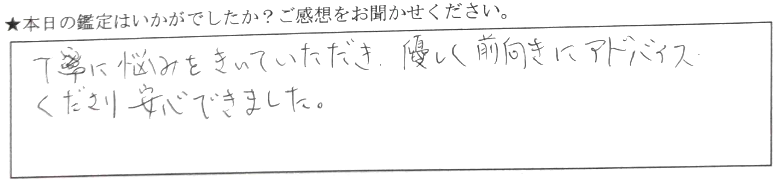 ★本日の鑑定はいかがでしたか？ご感想をお聞かせください。
丁寧に悩みをきいていただき、優しく前向きにアドバイス
くださり安心できました。